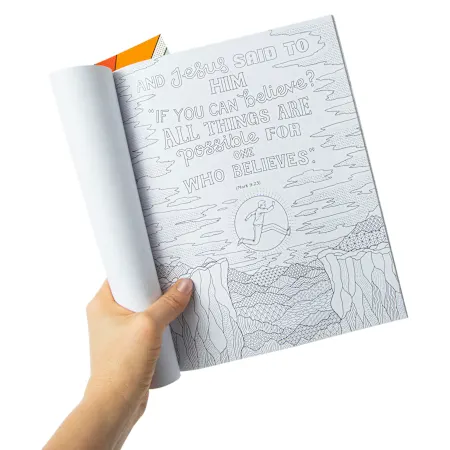 AND Jesus SAID TO
HIM
"IF YOU CAN believe?
ALL THINGS ARE
possible FOR
ONE
WHO BELIEVES".
(Mark 9:23)